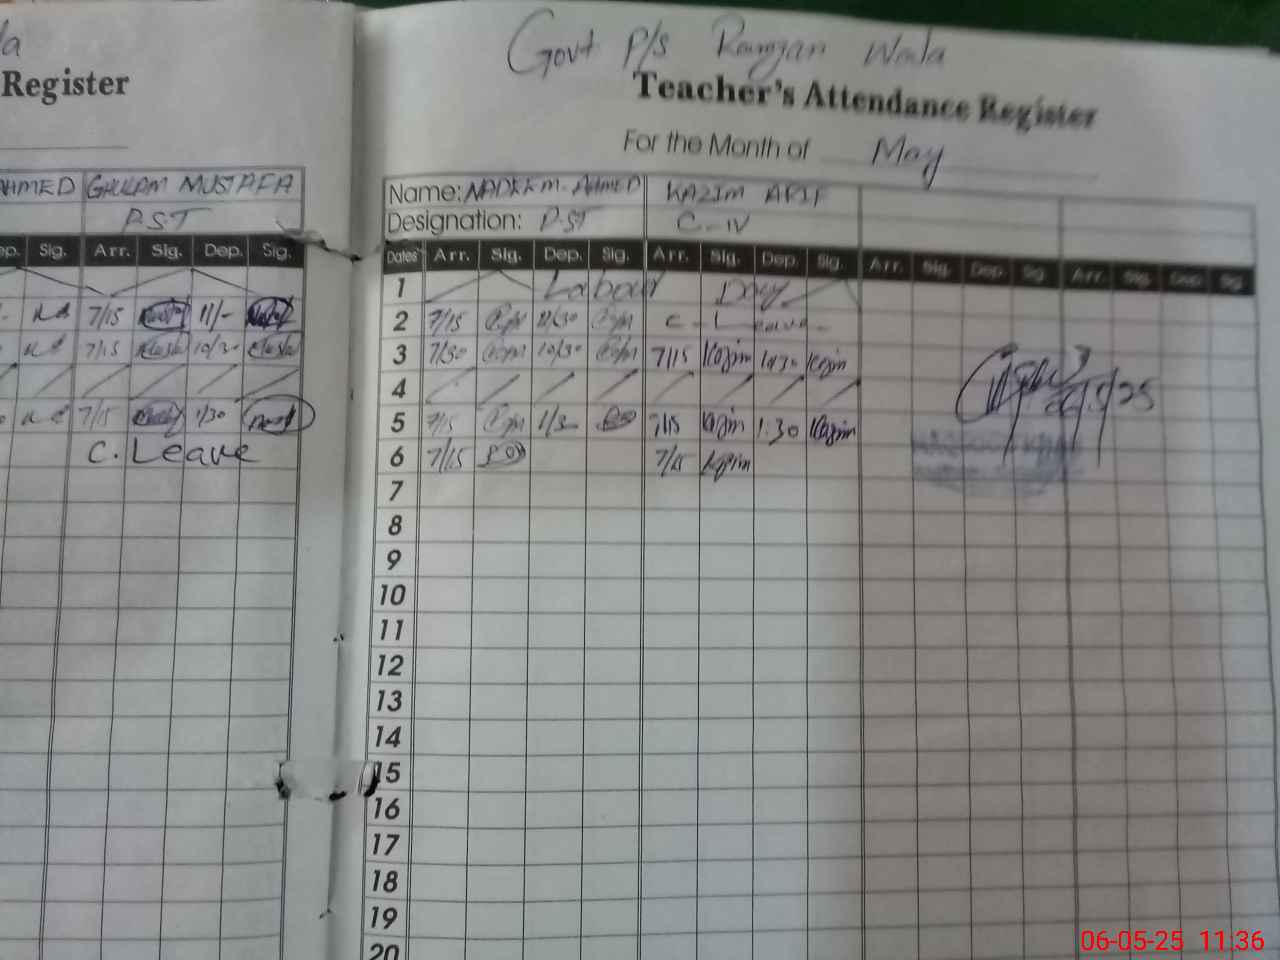 Register
AHMED GHULAM MUSTAFA
P.S.T
Sig. Arr. Sig. Dep. Sig.
7/15 11/-
7/15 10/30
7/15 1/30
C. Leave
Govt P/s Ramzan Wala
Teacher's Attendance Register
For the Month of May
Name: NADEEM AHMED KAZIM ARIF
Designation: PST C-IV
Dates Arr. Sig. Dep. Sig. Arr. Sig. Dep. Sig. Arr. Sig. Dep. Sig. Arr. Sig. Dep. Sig.
1 Labour Day
2 7/15 11/30 C-Leave
3 7/30 10/30 7/15 Kazim 10/30 Kazim
4
5 7/15 1/30 7/15 Kazim 1:30 Kazim
6 7/15 7/15 Kazim
7
8
9
10
11
12
13
14
15
16
17
18
19
20
06-05-25 11:36